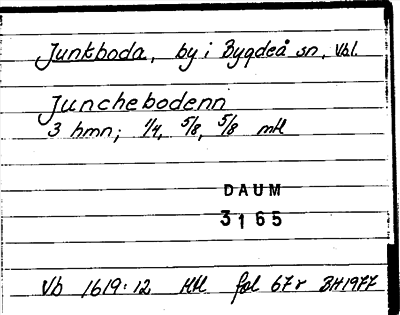 Junkboda, by i Bygdeå sn, Vbl.
Junchebodenn
3 hmn; 1/4, 5/8, 5/8 mtl
DAUM
3165
Vb 1619:12 Mtl fol 67r BH1977